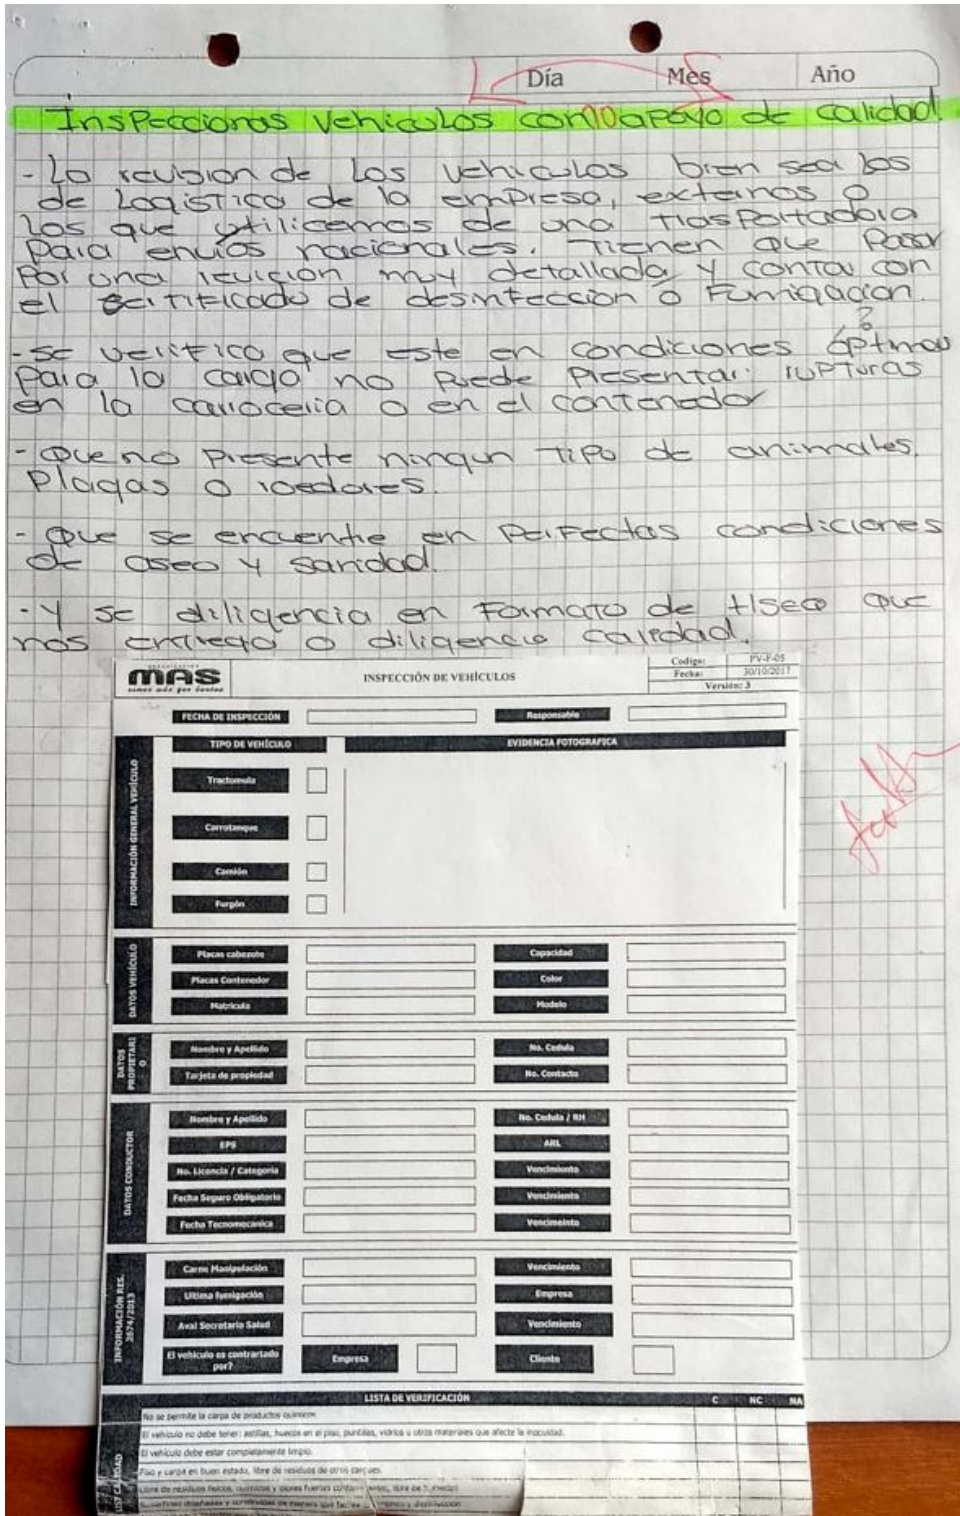 Día Mes Año
Inspecciones vehiculos con apoyo de calidad.
- La revision de los vehiculos bien sea los
de Logistica de la empresa, externos o
los que utilicemos de una trasportadora
para envios nacionales. Tienen que pasar
por una revición muy detallada y contar con
el certificado de desinfección o Fumigacion.
- Se verifica que este en condiciones óptimas
para la carga no puede presentar: rupturas
en la carroceria o en el contenedor
- Que no presente ningun tipo de animales.
Plagas o roedores.
- Que se encuentre en perfectas condiciones
de aseo y sanidad.
- Y se diligencia en Formato de HSEQ que
nos entrega o diligencia calidad.
ORGANIZACIÓN
MAS
somos más que
INSPECCIÓN DE VEHÍCULOS
Codigo: PV-F-05
Fecha: 30/10/2017
Versión: 3
FECHA DE INSPECCIÓN Responsable
TIPO DE VEHÍCULO EVIDENCIA FOTOGRAFICA
INFORMACIÓN GENERAL VEHÍCULO
Tractomula
Carrotanque
Camión
Furgón
DATOS VEHÍCULO
Placas cabezote Capacidad
Placas Contenedor Color
Matricula Modelo
DATOS PROPIETARI
O
Nombre y Apellido No. Cedula
Tarjeta de propiedad No. Contacto
DATOS CONDUCTOR
Nombre y Apellido No. Cedula / RH
EPS ARL
No. Licencia / Categoria Vencimiento
Fecha Seguro Obligatorio Vencimiento
Fecha Tecnomecanica Vencimeinto
INFORMACIÓN RES.
2674/2013
Carne Manipulación Vencimiento
Ultima fumigación Empresa
Aval Secretaria Salud Vencimiento
El vehiculo es contrartado
por? Empresa Cliente
LISTA DE VERIFICACIÓN C NC NA
No se permite la carga de productos quimicos
El vehiculo no debe tener: astillas, huecos en el piso, puntillas, vidrios u otros materiales que afecte la inocuidad.
El vehiculo debe estar completamente limpio.
Piso y carpa en buen estado, libre de residuos de otros cargues.
Libre de residuos fisicos, quimicos y olores fuertes
Superficies diseñadas y construidas de manera que